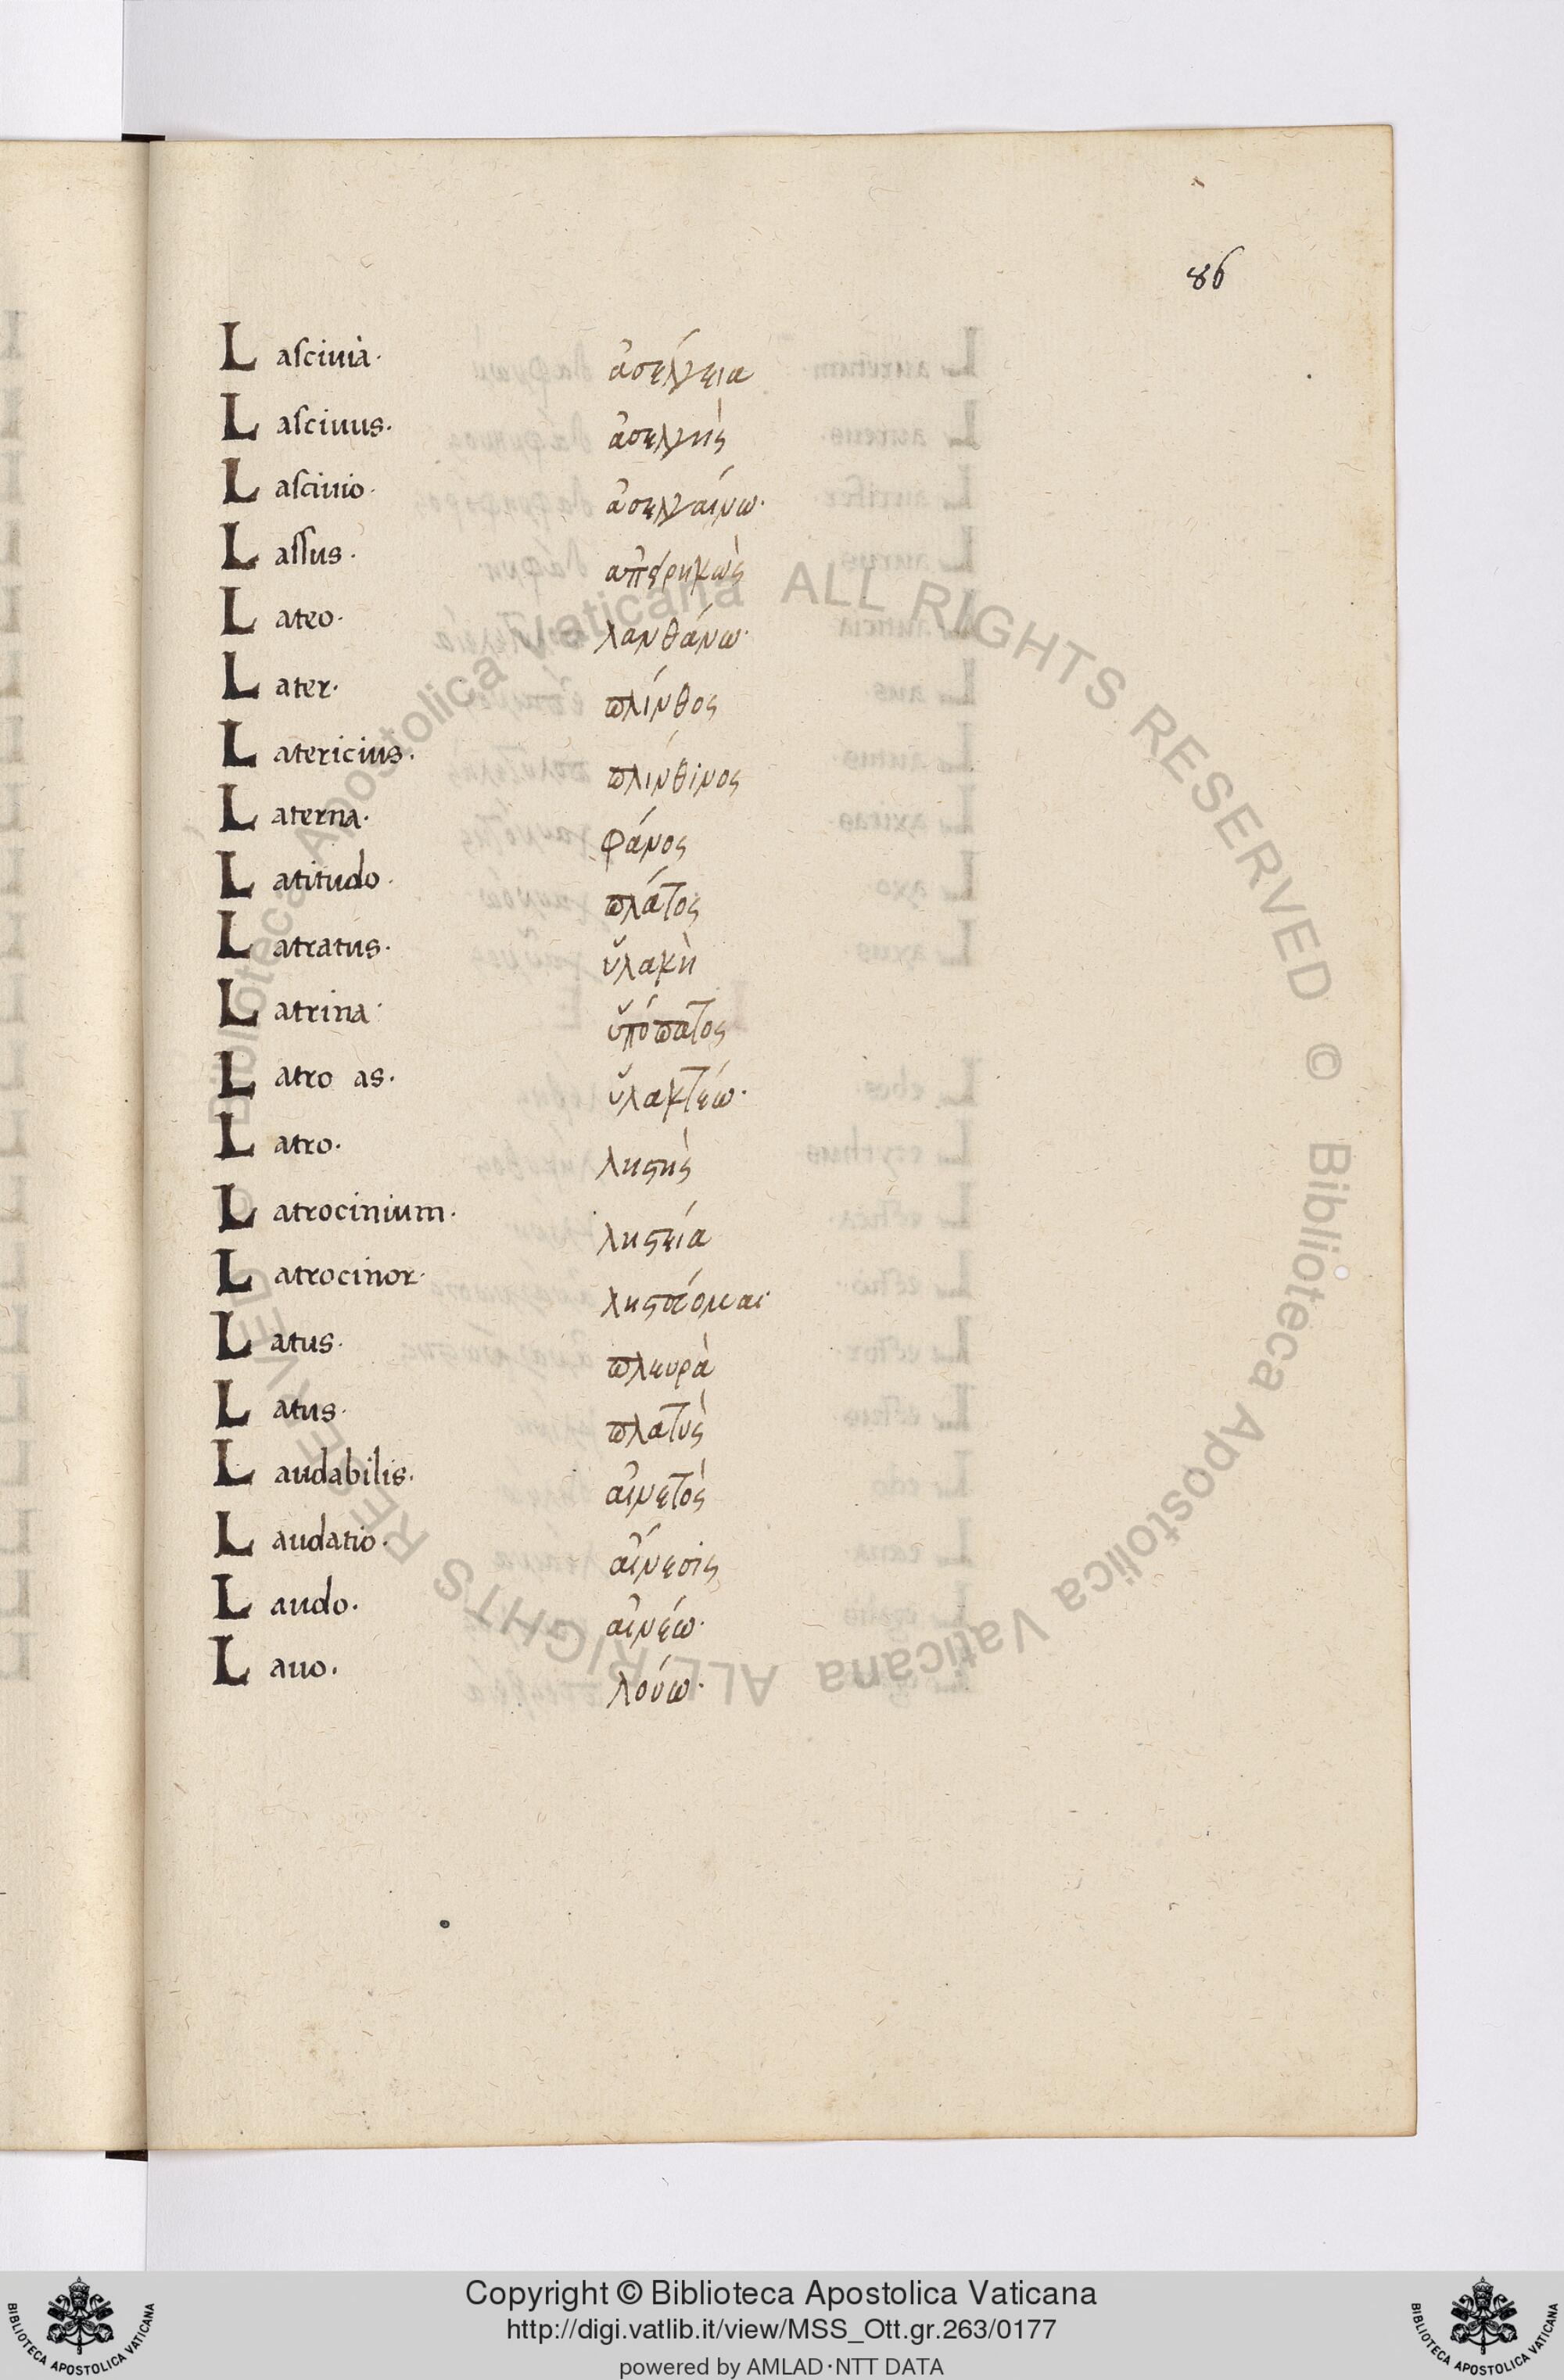 86
Lasciuia· ἀσέλγεια
Lasciuus· ἀσελγὴς
Lasciuio· ἀσελγαίνω·
Lassus· ἀπειρηκὼς
Lateo· λανθάνω·
Later· πλίνθος
Latericius· πλίνθινος
Laterna· φάνος
Latitudo· πλάτος
Latratus· ὑλακὴ
Latrina· ὑπόπατος
Latro as· ὑλακτέω·
Latro· ληστὴς
Latrocinium· ληστεία
Latrocinor· ληστεύομαι
Latus· πλευρὰ
Latus· πλατὺς
Laudabilis· αἰνετὸς
Laudatio· αἴνεσις
Laudo· αἰνέω·
Lauo· λούω·
© Biblioteca Apostolica Vaticana ALL RIGHTS RESERVED © Biblioteca Apostolica Vaticana ALL RIGHTS RESERVED
Copyright © Biblioteca Apostolica Vaticana
http://digi.vatlib.it/view/MSS_Ott.gr.263/0177
powered by AMLAD·NTT DATA
BIBLIOTECA APOSTOLICA VATICANA
BIBLIOTECA APOSTOLICA VATICANA